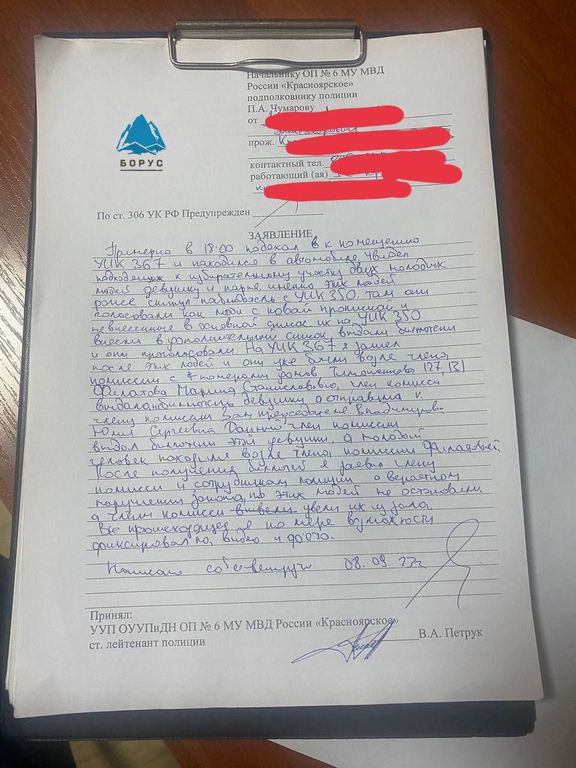 Начальнику ОП № 6 МУ МВД
России «Красноярское»
подполковнику полиции
П.А. Чумарову
от
прож.
контактный тел.
работающий (ая)
БОРУС
По ст. 306 УК РФ Предупрежден
ЗАЯВЛЕНИЕ
Примерно в 18:00 подъехал в к помещению
УИК 367 и находился в автомобиле. Увидел
подходящих к избирательному участку двух молодых
людей девушку и парня именно этих людей
ранее наблюдатель с УИК 350. там они
голосовали как люди с новой пропиской и
не внесенные в основной список их на УИК 350
внесли в дополнительный список выдали бюллетени
и они проголосовали. На УИК 367 я зашел
после этих людей и они уже были возле члена
комиссии с номерами домов 127,131
Марина Станиславовна, член комиссии
девушку а отправила к
члену комиссии Зам председателе
Юлия Сергеевна Данный член комиссии
выдал бюллетни этой девушки, а молодой
человек находился возле члена комиссии
После получения бюллетней я заявил члену
комиссии и сотрудникам полиции о вероятном
нарушении закона, но этих людей не остановили
а члены комиссии вывели, увели их из зала.
Все происходящее я по мере возможности
фиксировал на видео и фото.
Написано собственноручно 08.09.23г
Принял:
УУП ОУУПиДН ОП № 6 МУ МВД России «Красноярское»
ст. лейтенант полиции В.А. Петрук